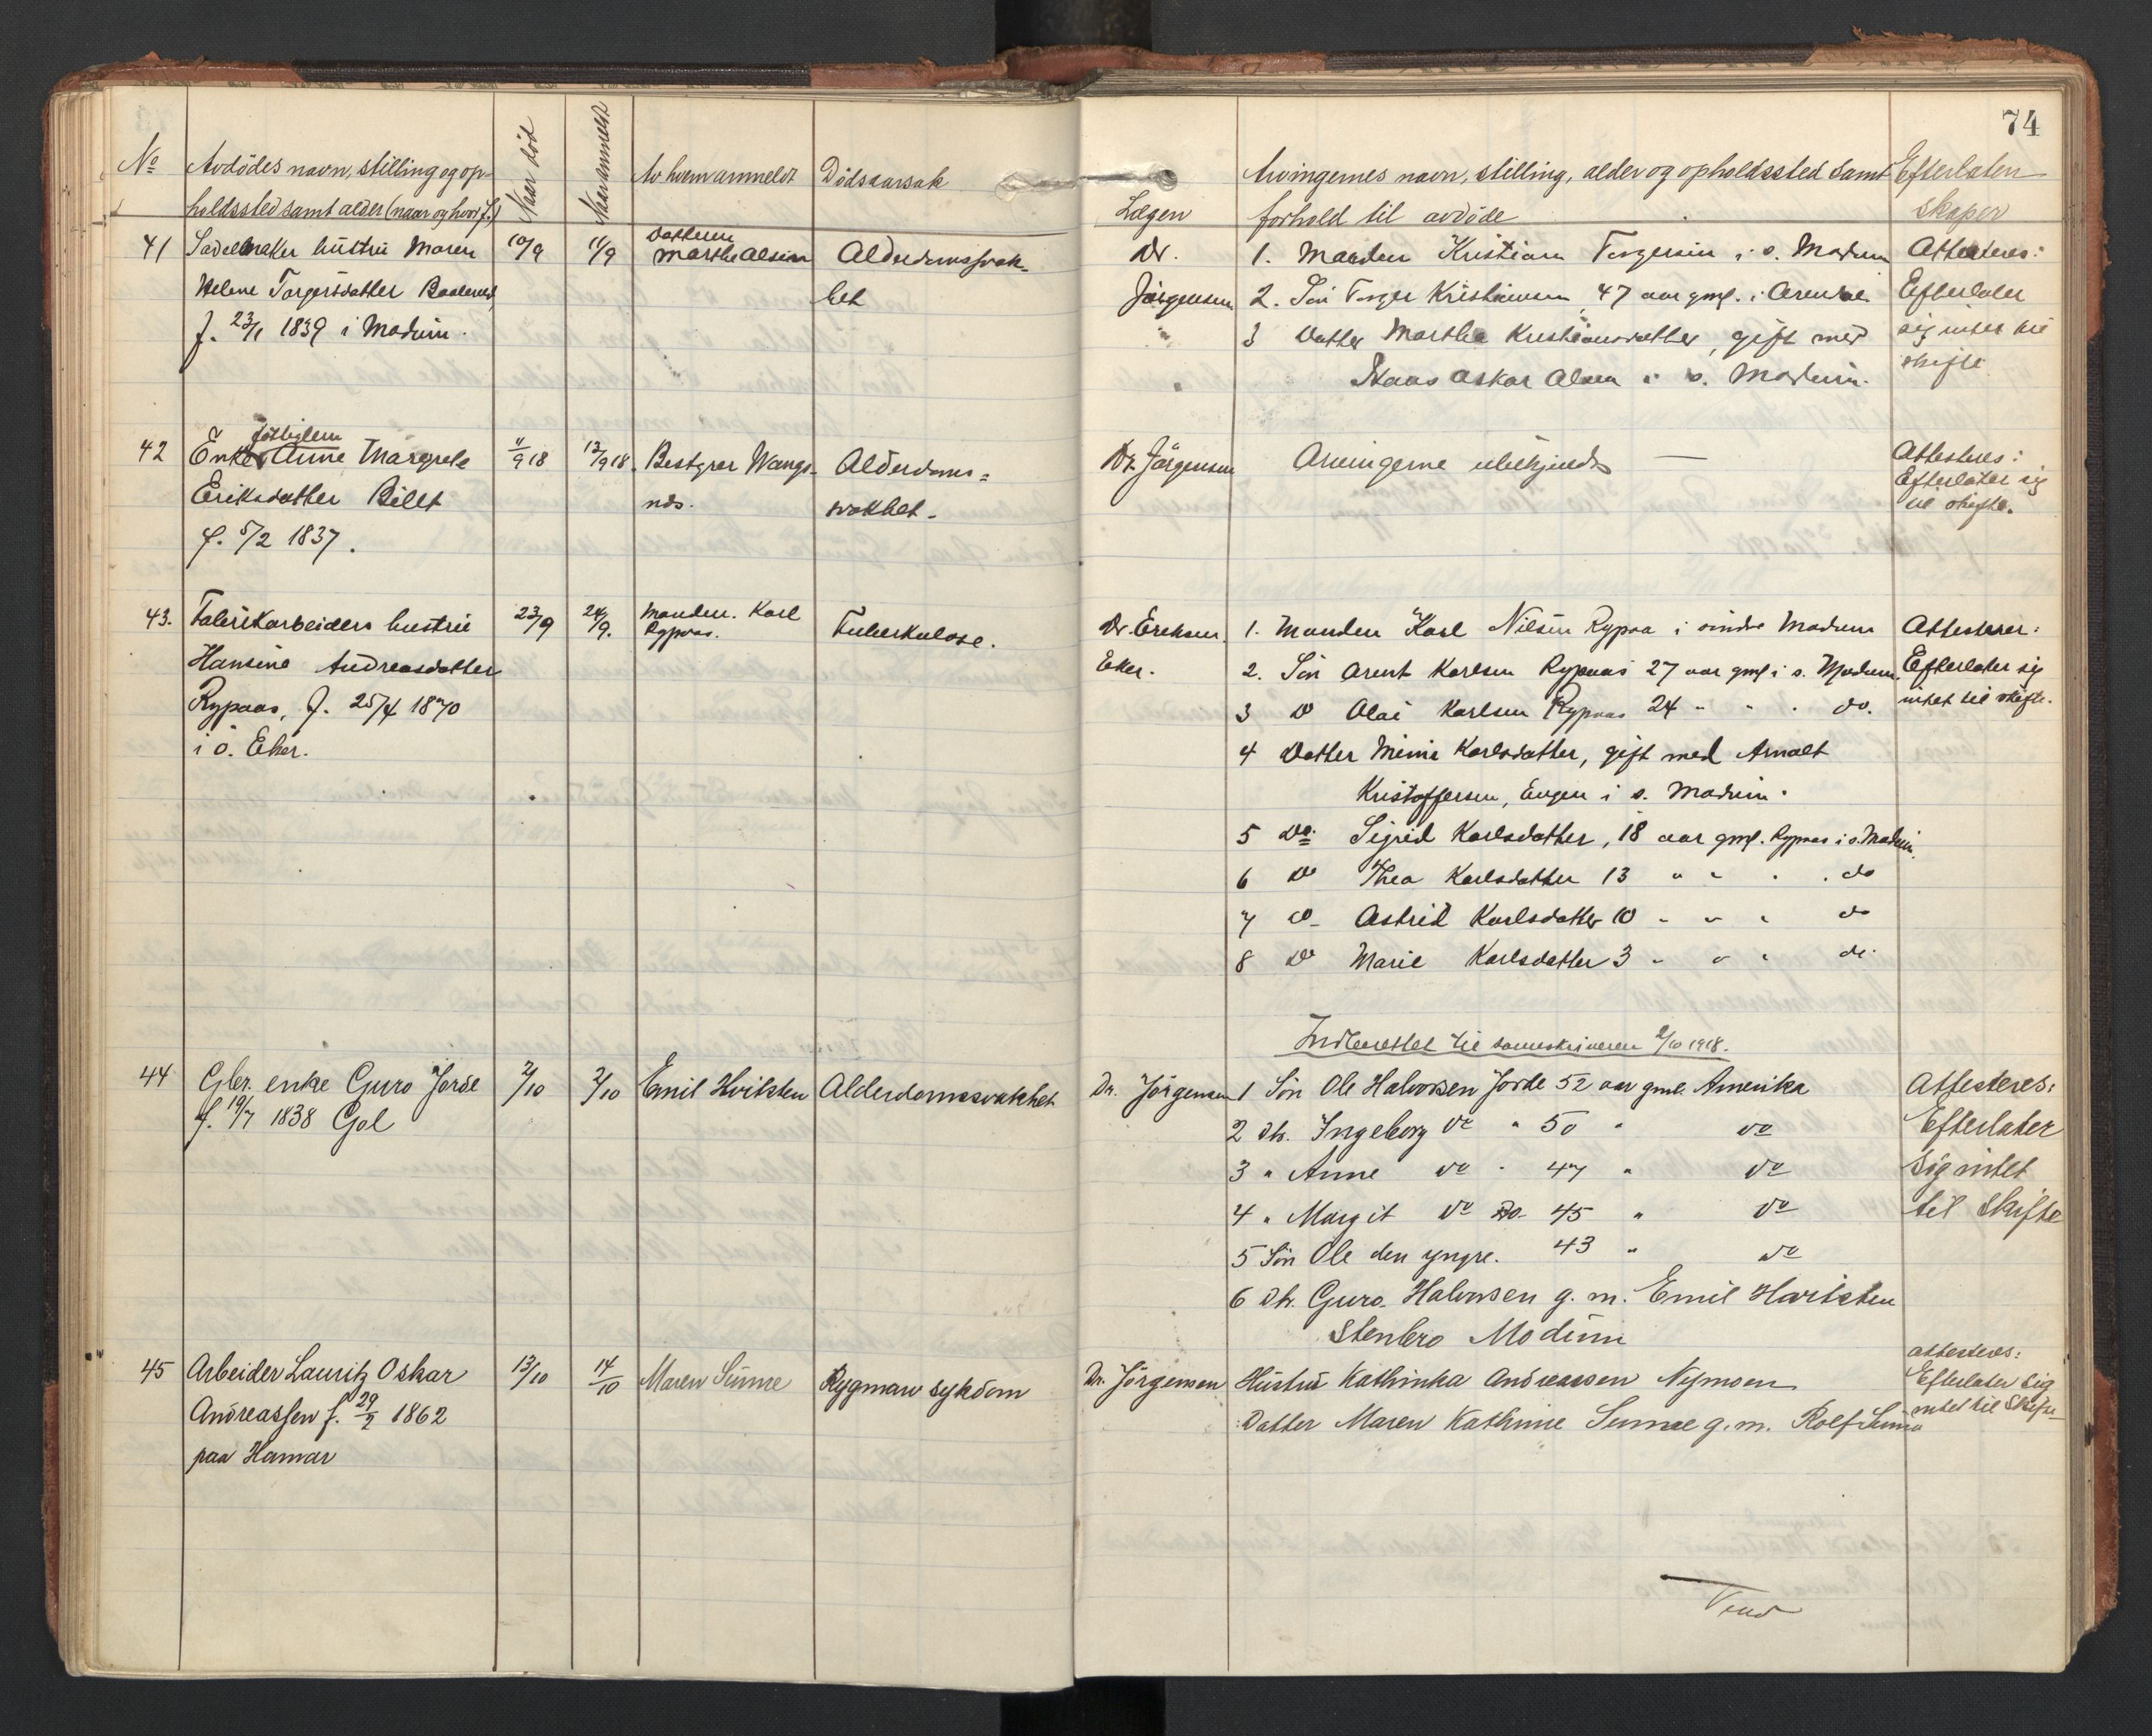 74
No
Avdödes navn, stilling og op-
holdssted samt alder (naar og hvor f.)
Naar död
Naar anmeldt
Av hvem anmeldt
Dödsaarsak
Lægen
Arvingernes navn, stilling, alder og opholdssted samt
forhold til avdöde
Efterlaten
skaper
41
Sadelmaker hustru Maren
Helene Torgersdatter
f. 23/1 1839 i Modum.
10/9
11/9
Datteren
Marthe Olsen
Alderdomssvak-
het
Dr.
Jörgensen
1. Manden Kristian Torgersen i s. Modum
2. Sön Torger Kristiansen, 47 aar gml. i Arendal
3 Datter Marthe Kristiansdatter, gift med
Oskar Olsen i s. Modum.
Attesteres:
Efterlater
sig intet til
skifte
42
Fattiglem
Enke Anne Margrete
Eriksdatter Billt
f. 5/2 1837.
11/9 18
12/9 18.
Bestyrer Wangs-
nes.
Alderdoms=
svakhet.
Dr. Jörgensen
Arvingerne ubekjendt —
Attesteres:
Efterlater sig
til skifte.
43.
Fabrikarbeiders hustru
Hansine Andreasdatter
Rypaas, f. 25/4 1870
i ö. Eker.
23/9
24/9.
Manden. Karl
Rypaas.
Tuberkulose.
Dr. Eriksen.
Eker.
1. Manden Karl Nilsen Rypaa i söndre Modum
2. Sön Arent Karlsen Rypaas 27 aar gml i s. Modum.
3 Do Olai Karlsen Rypaas 24 " " " do.
4 Datter Mimi Karlsdatter, gift med Arnalt
Kristoffersen, Eugen i s. Modum.
5 Do Sigrid Karlsdatter, 18 aar gml. Rypaas i s. Modum.
6 Do Thea Karlsdatter 13 " " " do
7 Do Astrid Karlsdatter 10 " " " do
8 Do Marie Karlsdatter 3 " " " do.
Attesterer:
Efterlater sig
intet til skifte.
Indberettet til sorenskriveren 2/10 1918.
44
Gbr. enke Guro Jorde
f. 19/7 1838 Gol
2/10
2/10
Emil Hvilsten
Alderdomssvakhet
Dr. Jörgensen
1 Sön Ole Halvorsen Jorde 52 aar gml. Amerika
2 Dtr. Ingeborg do " 50 " do
3 " Anne do " 47 " do
4 " Margit do Do 45 " do
5 Sön Ole den yngre. 43 " do
6 Dtr. Guro Halvorsen g. m. Emil Hvilsten
Stenbro Modum
Attesteres:
Efterlater
sig intet
til skifte
45
Arbeider Lauritz Oskar
Andreassen f. 29/2 1862
paa Hamar
13/10
14/10
Maren Sünne
Rygmarv sykdom
Dr. Jörgensen
Hustru Kathinka Andreassen Nymoen
Datter Maren Kathrine Sunne g. m. Rolf Sunne
attesteres:
Efterlater sig
intet til Skifte
Vend